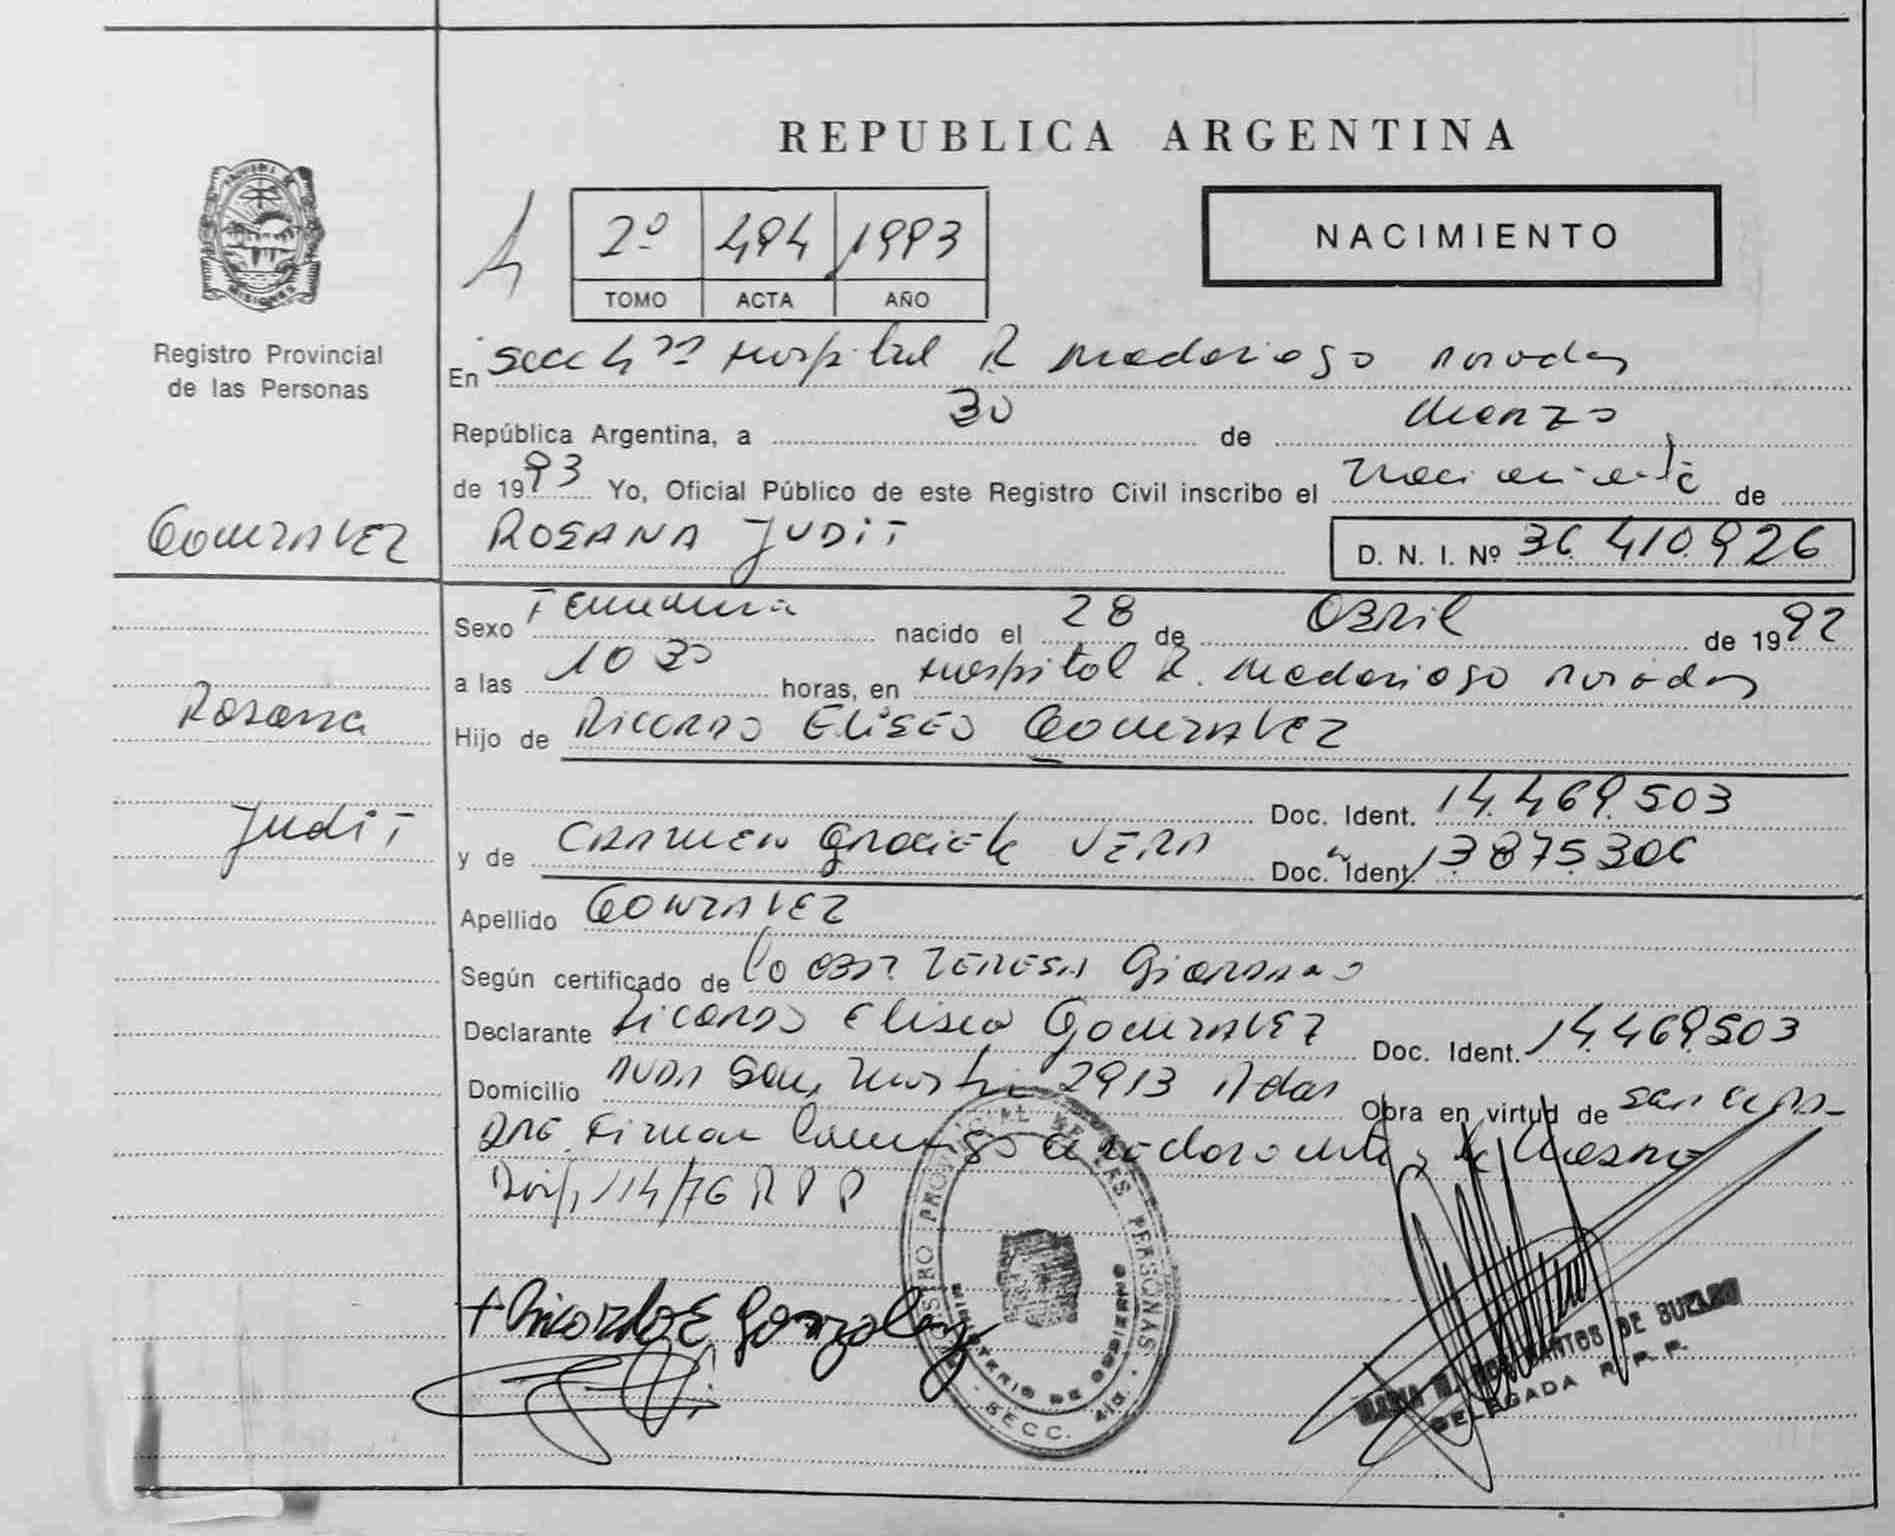 REPUBLICA ARGENTINA
2º 494 1993
TOMO ACTA AÑO
NACIMIENTO
MISIONES
Registro Provincial
de las Personas
En Secc 4ª Hospital R Madariaga Posadas
República Argentina, a 30 de Marzo
de 1993 Yo, Oficial Público de este Registro Civil inscribo el Nacimiento de
GONZALEZ
ROSANA JUDIT
D. N. I. Nº 36.410.926
Sexo Femenino nacido el 28 de Abril de 1992
a las 10 30 horas, en Hospital R. Madariaga Posadas
Rosana
Hijo de RICARDO ELISEO GONZALEZ
Doc. Ident. 14.469.503
Judit
y de CARMEN Graciela VERA Doc. Ident. 13.875.306
Apellido GONZALEZ
Según certificado de la OBST. TERESA Giordano
Declarante Ricardo Eliseo GONZALEZ Doc. Ident. 14.469.503
Domicilio AVDA San Martin 2913 Pdas Obra en virtud de ser el PA-
DRE. Firman Conmigo el declarante y la Madre
Disp. 114/76 R P P
+ Ricardo E Gonzalez
REGISTRO PROVINCIAL DE LAS PERSONAS
MINISTERIO DE GOBIERNO
SECC. 4ta.
SANTOS DE BUENO
DELEGADA R. P. P.